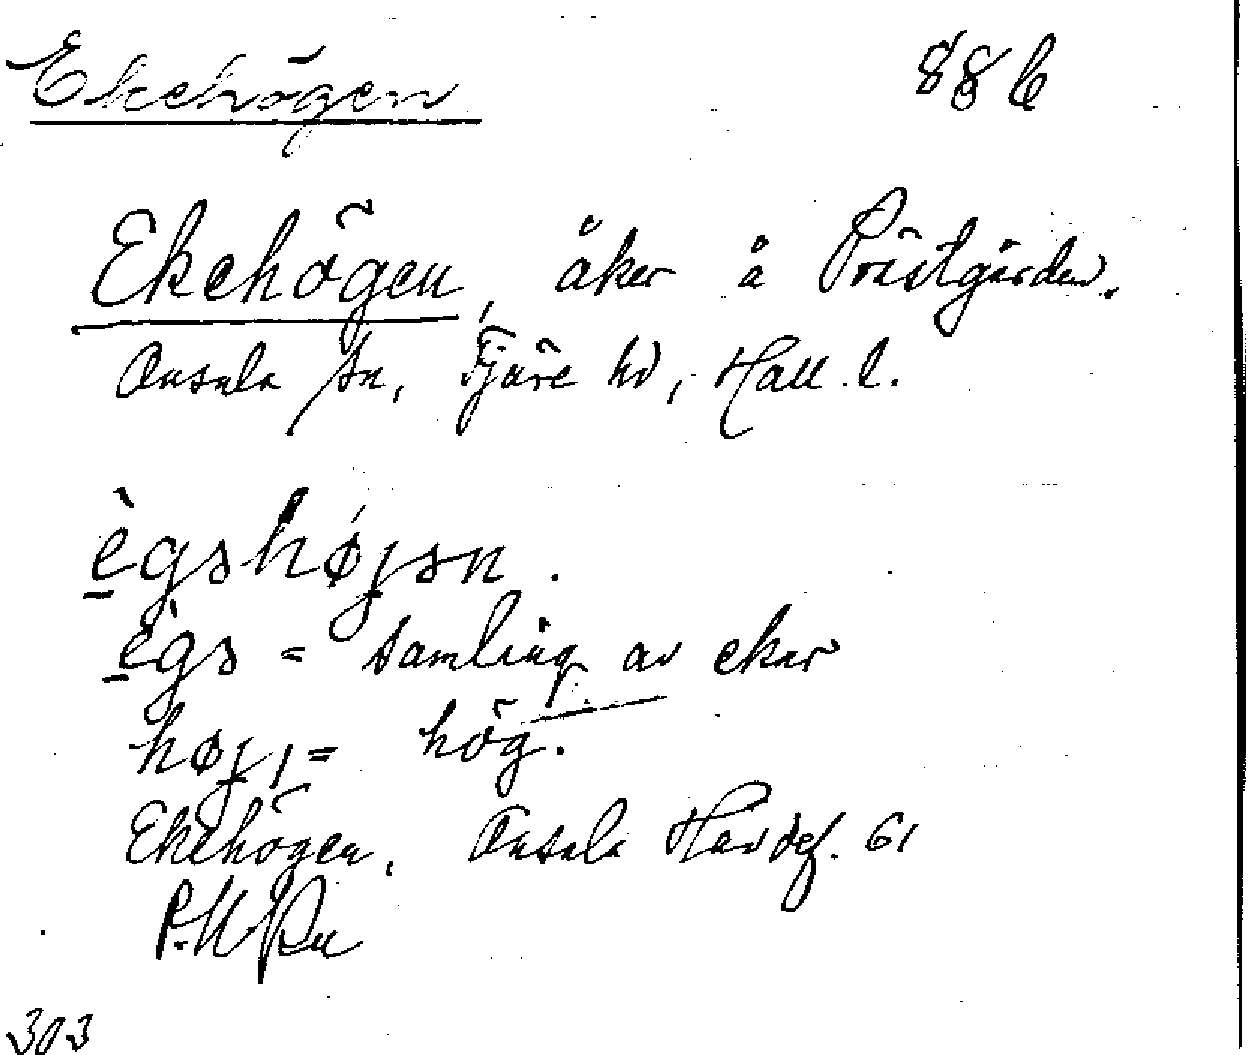 Ekehögen 886
Ekehögen, åker å Prästgården.
Onsala sn, Fjäre hd, Hall. l.
ègəhø̀jən.
ègə = samling av ekar
høj, = hög.
Ekehögen, Onsala Hävdef. 61
303